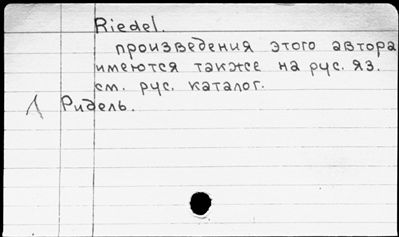 Riedel.
произведения этого автора
имеются также на рус. яз.
см. рус. каталог.
Ридель.